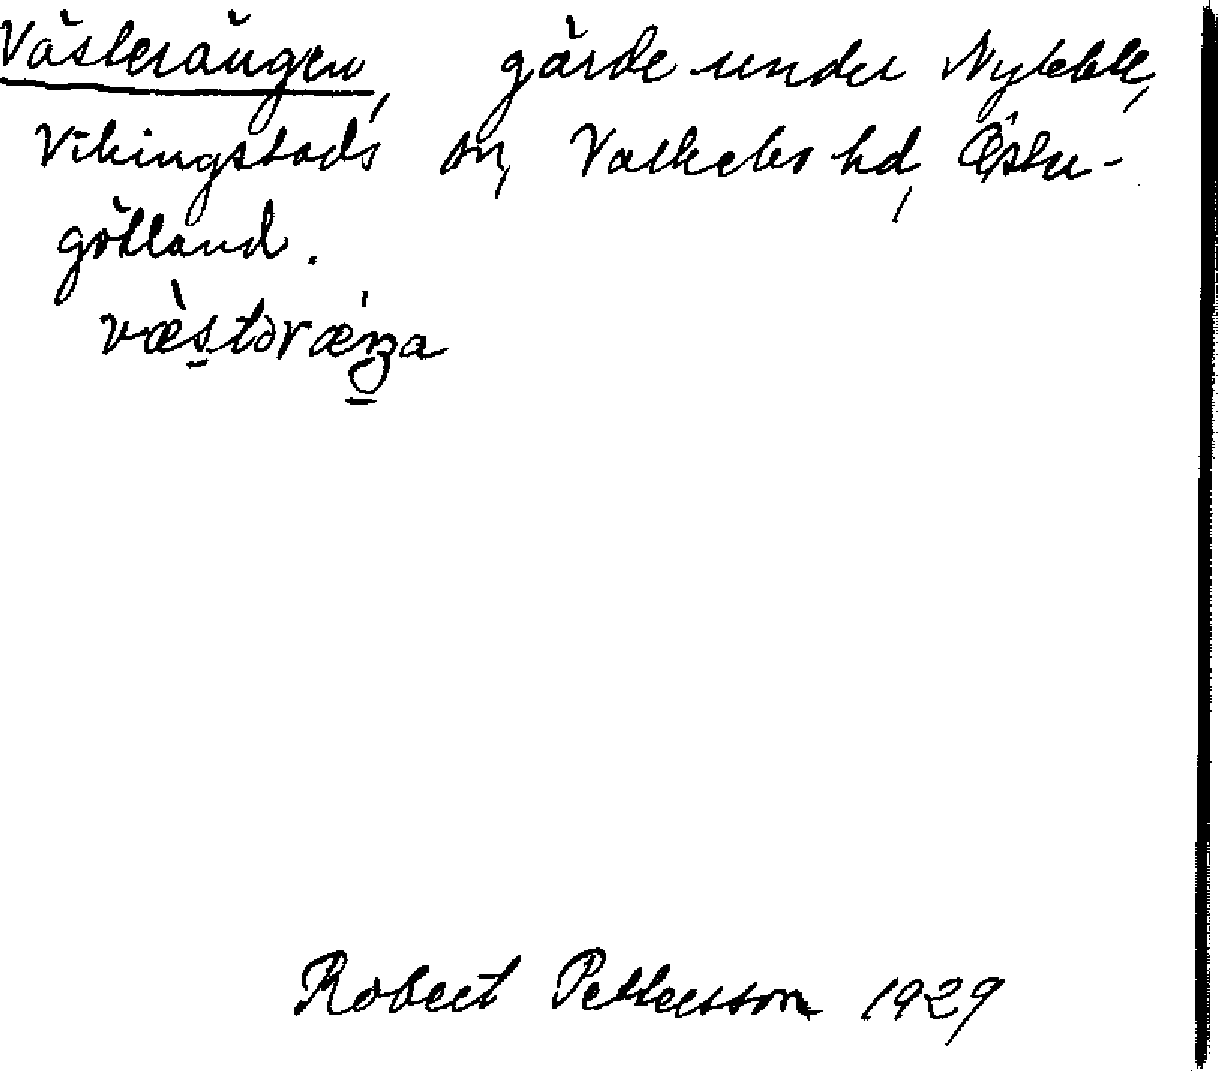 Västerängen, gärde under Nybble,
Vikingstads sn, Valkebo hd, Öster-
götland.
væ̀stərǽŋa
Robert Pettersson 1929